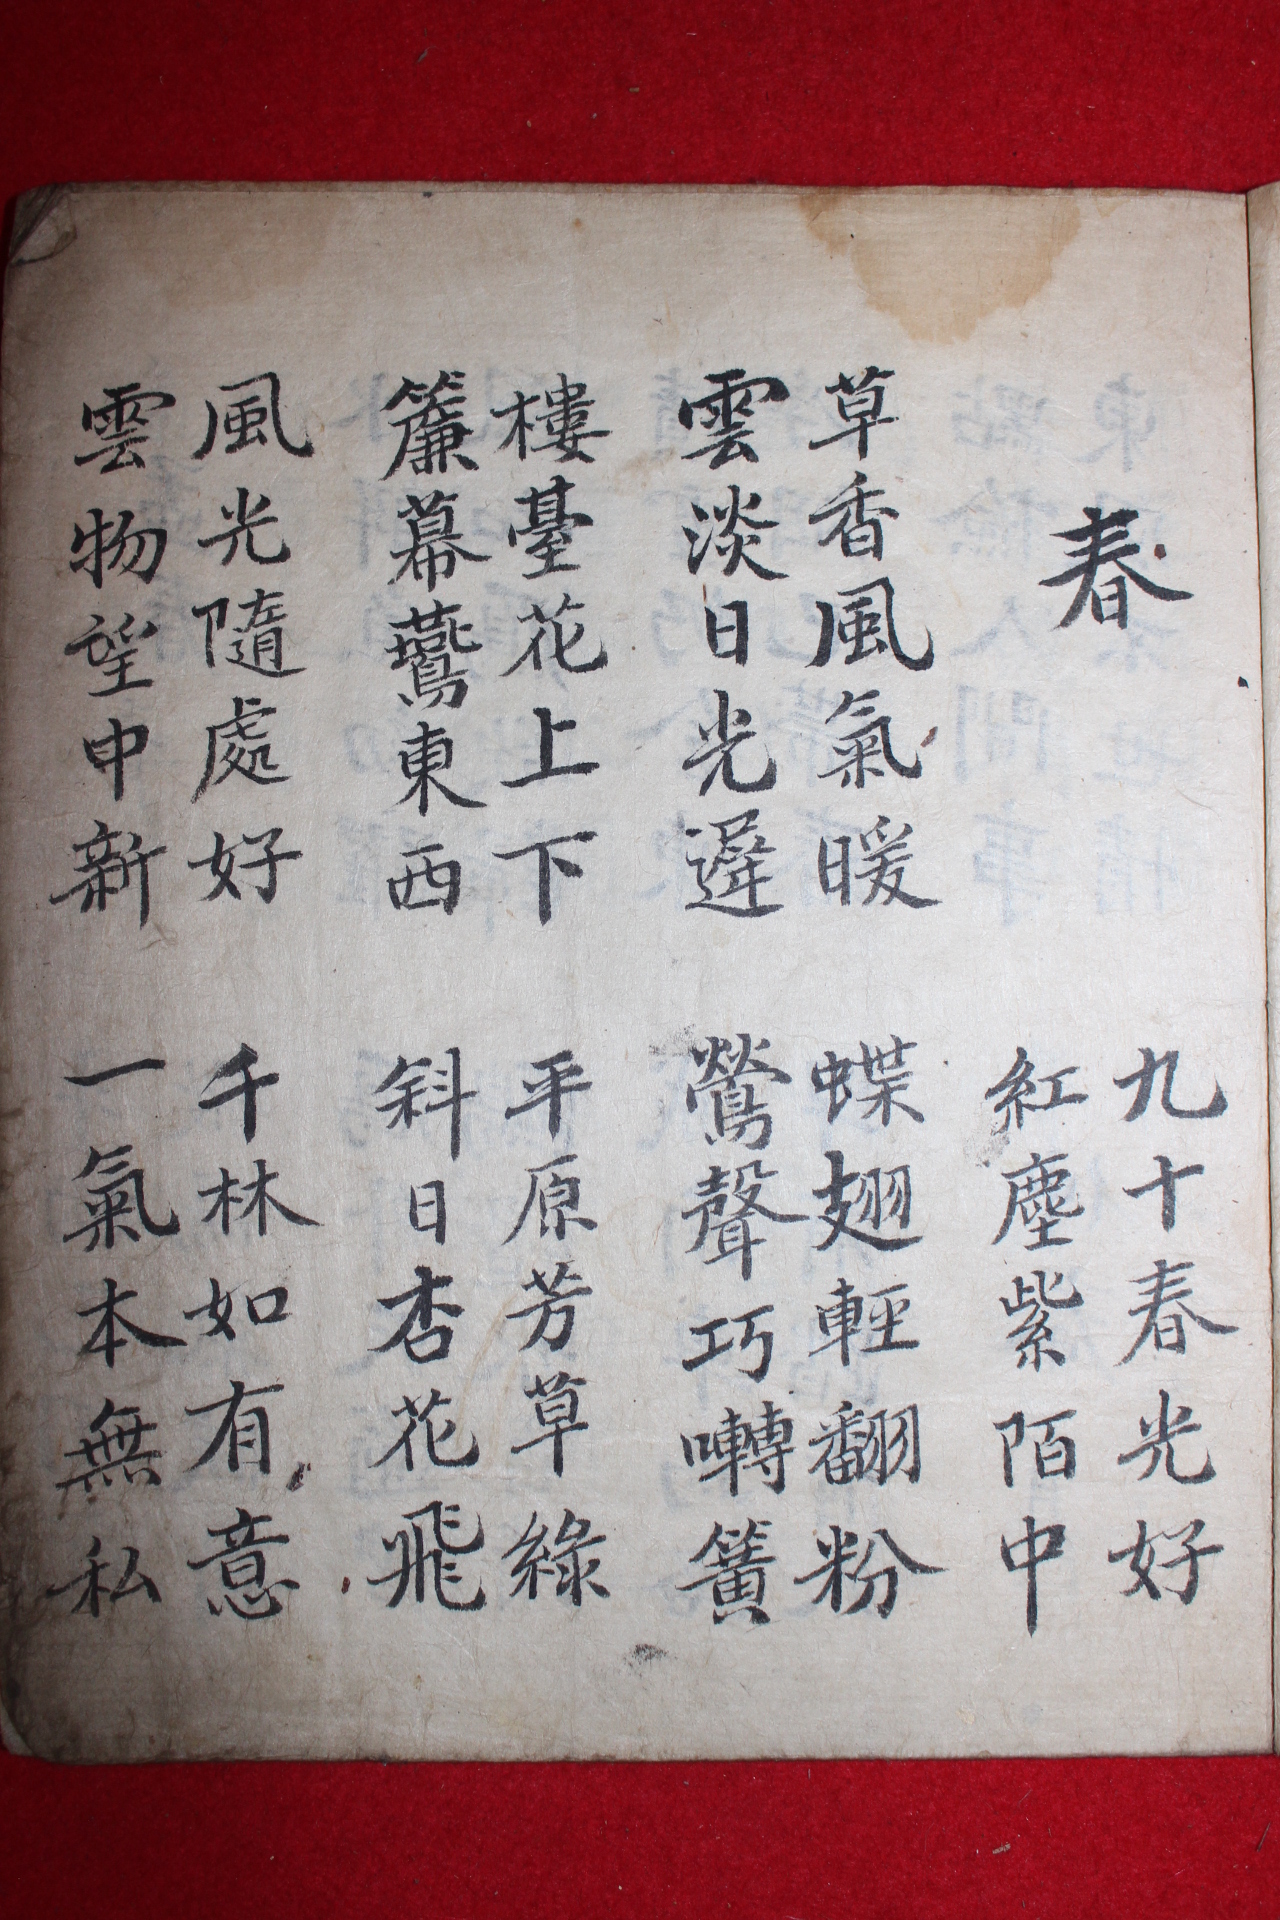 春
九十春光好
紅塵紫陌中
草香風氣暖
雲淡日光遲
蝶翅輕翻粉
鶯聲巧囀簧
樓臺花上下
簾幕鷰東西
平原芳草綠
斜日杏花飛
風光隨處好
雲物望申新
千林如有意
一氣本無私